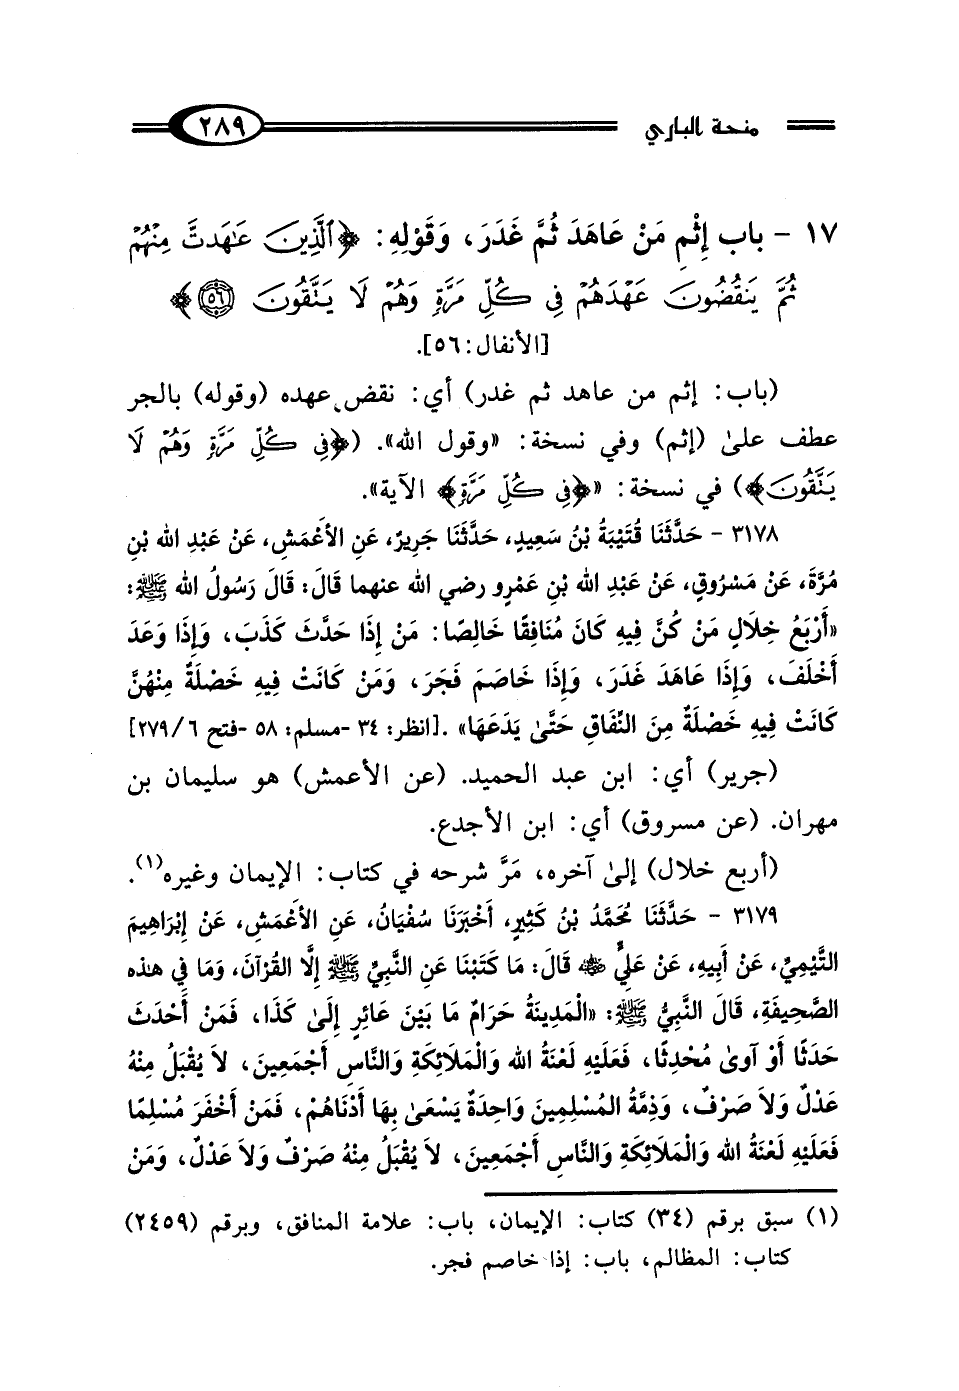 منحة الباري ٢٨٩
١٧ - باب إِثْمِ مَنْ عَاهَدَ ثُمَّ غَدَرَ، وَقَوْلِهِ: ﴿ٱلَّذِينَ عَٰهَدتَّ مِنْهُمْ
ثُمَّ يَنقُضُونَ عَهْدَهُمْ فِي كُلِّ مَرَّةٍ وَهُمْ لَا يَتَّقُونَ ٥٦﴾
[الأنفال: ٥٦].
(باب: إثم من عاهد ثم غدر) أي: نقض عهده (وقوله) بالجر
عطف علىٰ (إثم) وفي نسخة: «وقول الله». (﴿فِي كُلِّ مَرَّةٍ وَهُمْ لَا
يَتَّقُونَ﴾) في نسخة: «﴿فِي كُلِّ مَرَّةٍ﴾ الآية».
٣١٧٨ - حَدَّثَنَا قُتَيْبَةُ بْنُ سَعِيدٍ، حَدَّثَنَا جَرِيرٌ، عَنِ الأَعْمَشِ، عَنْ عَبْدِ الله بْنِ
مُرَّةَ، عَنْ مَسْرُوقٍ، عَنْ عَبْدِ الله بْنِ عَمْرٍو رضي الله عنهما قَالَ: قَالَ رَسُولُ الله ﷺ:
«أَرْبَعُ خِلَالٍ مَنْ كُنَّ فِيهِ كَانَ مُنَافِقًا خَالِصًا: مَنْ إِذَا حَدَّثَ كَذَبَ، وَإِذَا وَعَدَ
أَخْلَفَ، وَإِذَا عَاهَدَ غَدَرَ، وَإِذَا خَاصَمَ فَجَرَ، وَمَنْ كَانَتْ فِيهِ خَصْلَةٌ مِنْهُنَّ
كَانَتْ فِيهِ خَصْلَةٌ مِنَ النِّفَاقِ حَتَّىٰ يَدَعَهَا» .[انظر: ٣٤ -مسلم: ٥٨ -فتح ٦/ ٢٧٩]
(جرير) أي: ابن عبد الحميد. (عن الأعمش) هو سليمان بن
مهران. (عن مسروق) أي: ابن الأجدع.
(أربع خلال) إلىٰ آخره، مَرَّ شرحه في كتاب: الإيمان وغيره(١).
٣١٧٩ - حَدَّثَنَا مُحَمَّدُ بْنُ كَثِيرٍ، أَخْبَرَنَا سُفْيَانُ، عَنِ الأَعْمَشِ، عَنْ إِبْرَاهِيمَ
التَّيْمِيِّ، عَنْ أَبِيهِ، عَنْ عَلِيٍّ رضي الله عنه قَالَ: مَا كَتَبْنَا عَنِ النَّبِيِّ ﷺ إِلَّا القُرْآنَ، وَمَا فِي هذه
الصَّحِيفَةِ، قَالَ النَّبِيُّ ﷺ: «الْمَدِينَةُ حَرَامٌ مَا بَيْنَ عَائِرٍ إِلَىٰ كَذَا، فَمَنْ أَحْدَثَ
حَدَثًا أَوْ آوىٰ مُحْدِثًا، فَعَلَيْهِ لَعْنَةُ الله وَالْمَلَائِكَةِ وَالنَّاسِ أَجْمَعِينَ، لاَ يُقْبَلُ مِنْهُ
عَدْلٌ وَلاَ صَرْفٌ، وَذِمَّةُ المُسْلِمِينَ وَاحِدَةٌ يَسْعَىٰ بِهَا أَدْنَاهُمْ، فَمَنْ أَخْفَرَ مُسْلِمًا
فَعَلَيْهِ لَعْنَةُ الله وَالْمَلَائِكَةِ وَالنَّاسِ أَجْمَعِينَ، لاَ يُقْبَلُ مِنْهُ صَرْفٌ وَلاَ عَدْلٌ، وَمَنْ
(١) سبق برقم (٣٤) كتاب: الإيمان، باب: علامة المنافق، وبرقم (٢٤٥٩)
كتاب: المظالم، باب: إذا خاصم فجر.